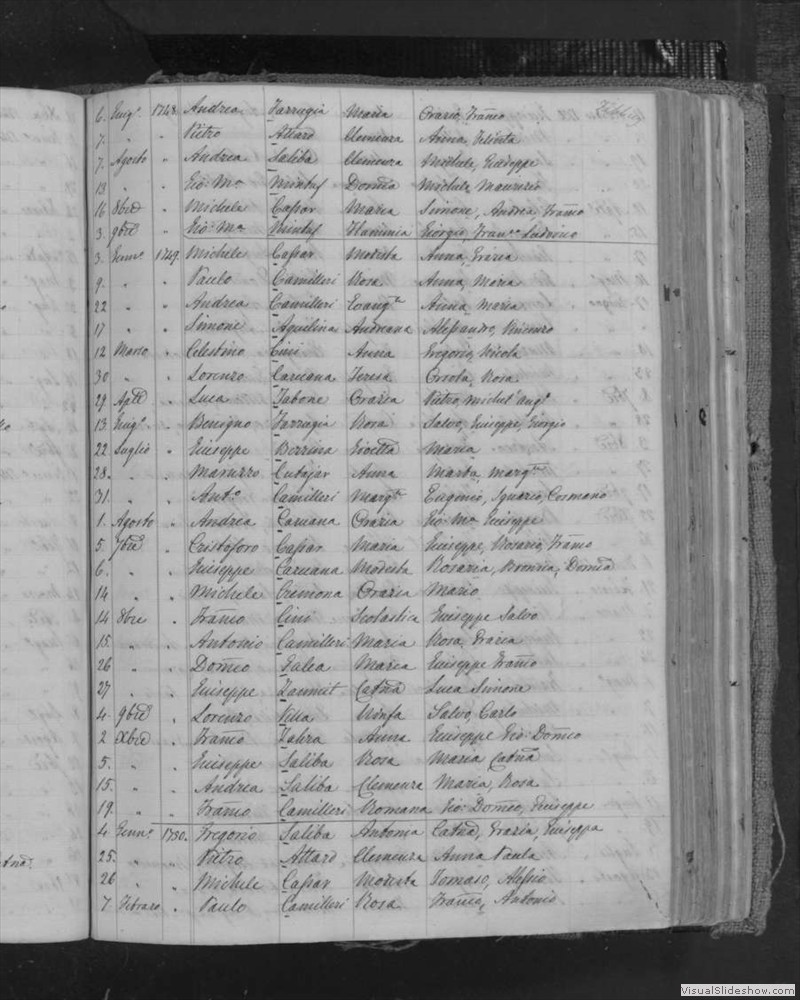 6. Giug.o 1748. Andrea Farrugia Maria Orazio, Franco
7. " " Pietro Attard Clemenza Anna,
7. Agosto " Andrea Saliba Clemenza Michele, Giuseppe
13 " " Gio: Ma Mintuf Domca Michele Maurizio
16 8bre " Michele Cassar Maria Simone, Andrea, Franco
3. 9bre " Gio: Ma Mintuf Flaminia Giorgio, Ludovico
3. Genn.o 1749. Michele Cassar Modesta Anna, Grazia
9. " " Paulo Camilleri Rosa Anna, Maria
22 " " Andrea Camilleri Evangta Anna, Maria
17 " " Simone Aquilina Andreana Alessandro, Vincenzo
12 Marzo " Celestino Cini Anna Gregorio, Nicola
30 " " Lorenzo Caruana Teresa Rosa
29 Aple " Luca Tabone Orazia Pietro, Michel'ang.o
13 Giug.o " Benigno Farrugia Rosa Salvo, Giuseppe, Giorgio
22 Luglio " Giuseppe Gioetta Maria
28. " " Maruzzo Cutajar Anna Marta, Margta
31. " " Ant.o Camilleri Margta Eugenio, Ignazio, Cosmano
1. Agosto " Andrea Caruana Orazia Gio: Ma Giuseppe
5. 7bre " Cristoforo Cassar Maria Giuseppe, Rosario, Franco
6. " " Giuseppe Caruana Modesta Rosaria, Domca
14 " " Michele Cremona Orazia Mario
14 8bre " Franco Cini Scolastica Giuseppe Salvo
15. " " Antonio Camilleri Maria Rosa, Grazia
26 " " Domco Galea Maria Giuseppe Franco
27 " " Giuseppe Zammit Catna Luca Simone
4. 9bre " Lorenzo Vella Ninfa Salvo, Carlo
2 Xbre " Franco Zahra Anna Giuseppe Gio: Domco
5. " " Giuseppe Saliba Rosa Maria Catna
15. " " Andrea Saliba Clemenza Maria, Rosa
19. " " Franco Camilleri Romana Gio: Domco, Giuseppe
4 Genn.o 1750. Gregorio Saliba Antonia Catna, Grazia, Giuseppa
25. " " Pietro Attard Clemenza Anna Paula
26 " " Michele Cassar Modesta Tomaso, Alessio
7 Febraro " Paulo Camilleri Rosa Franco, Antonio
VisualSlideshow.com